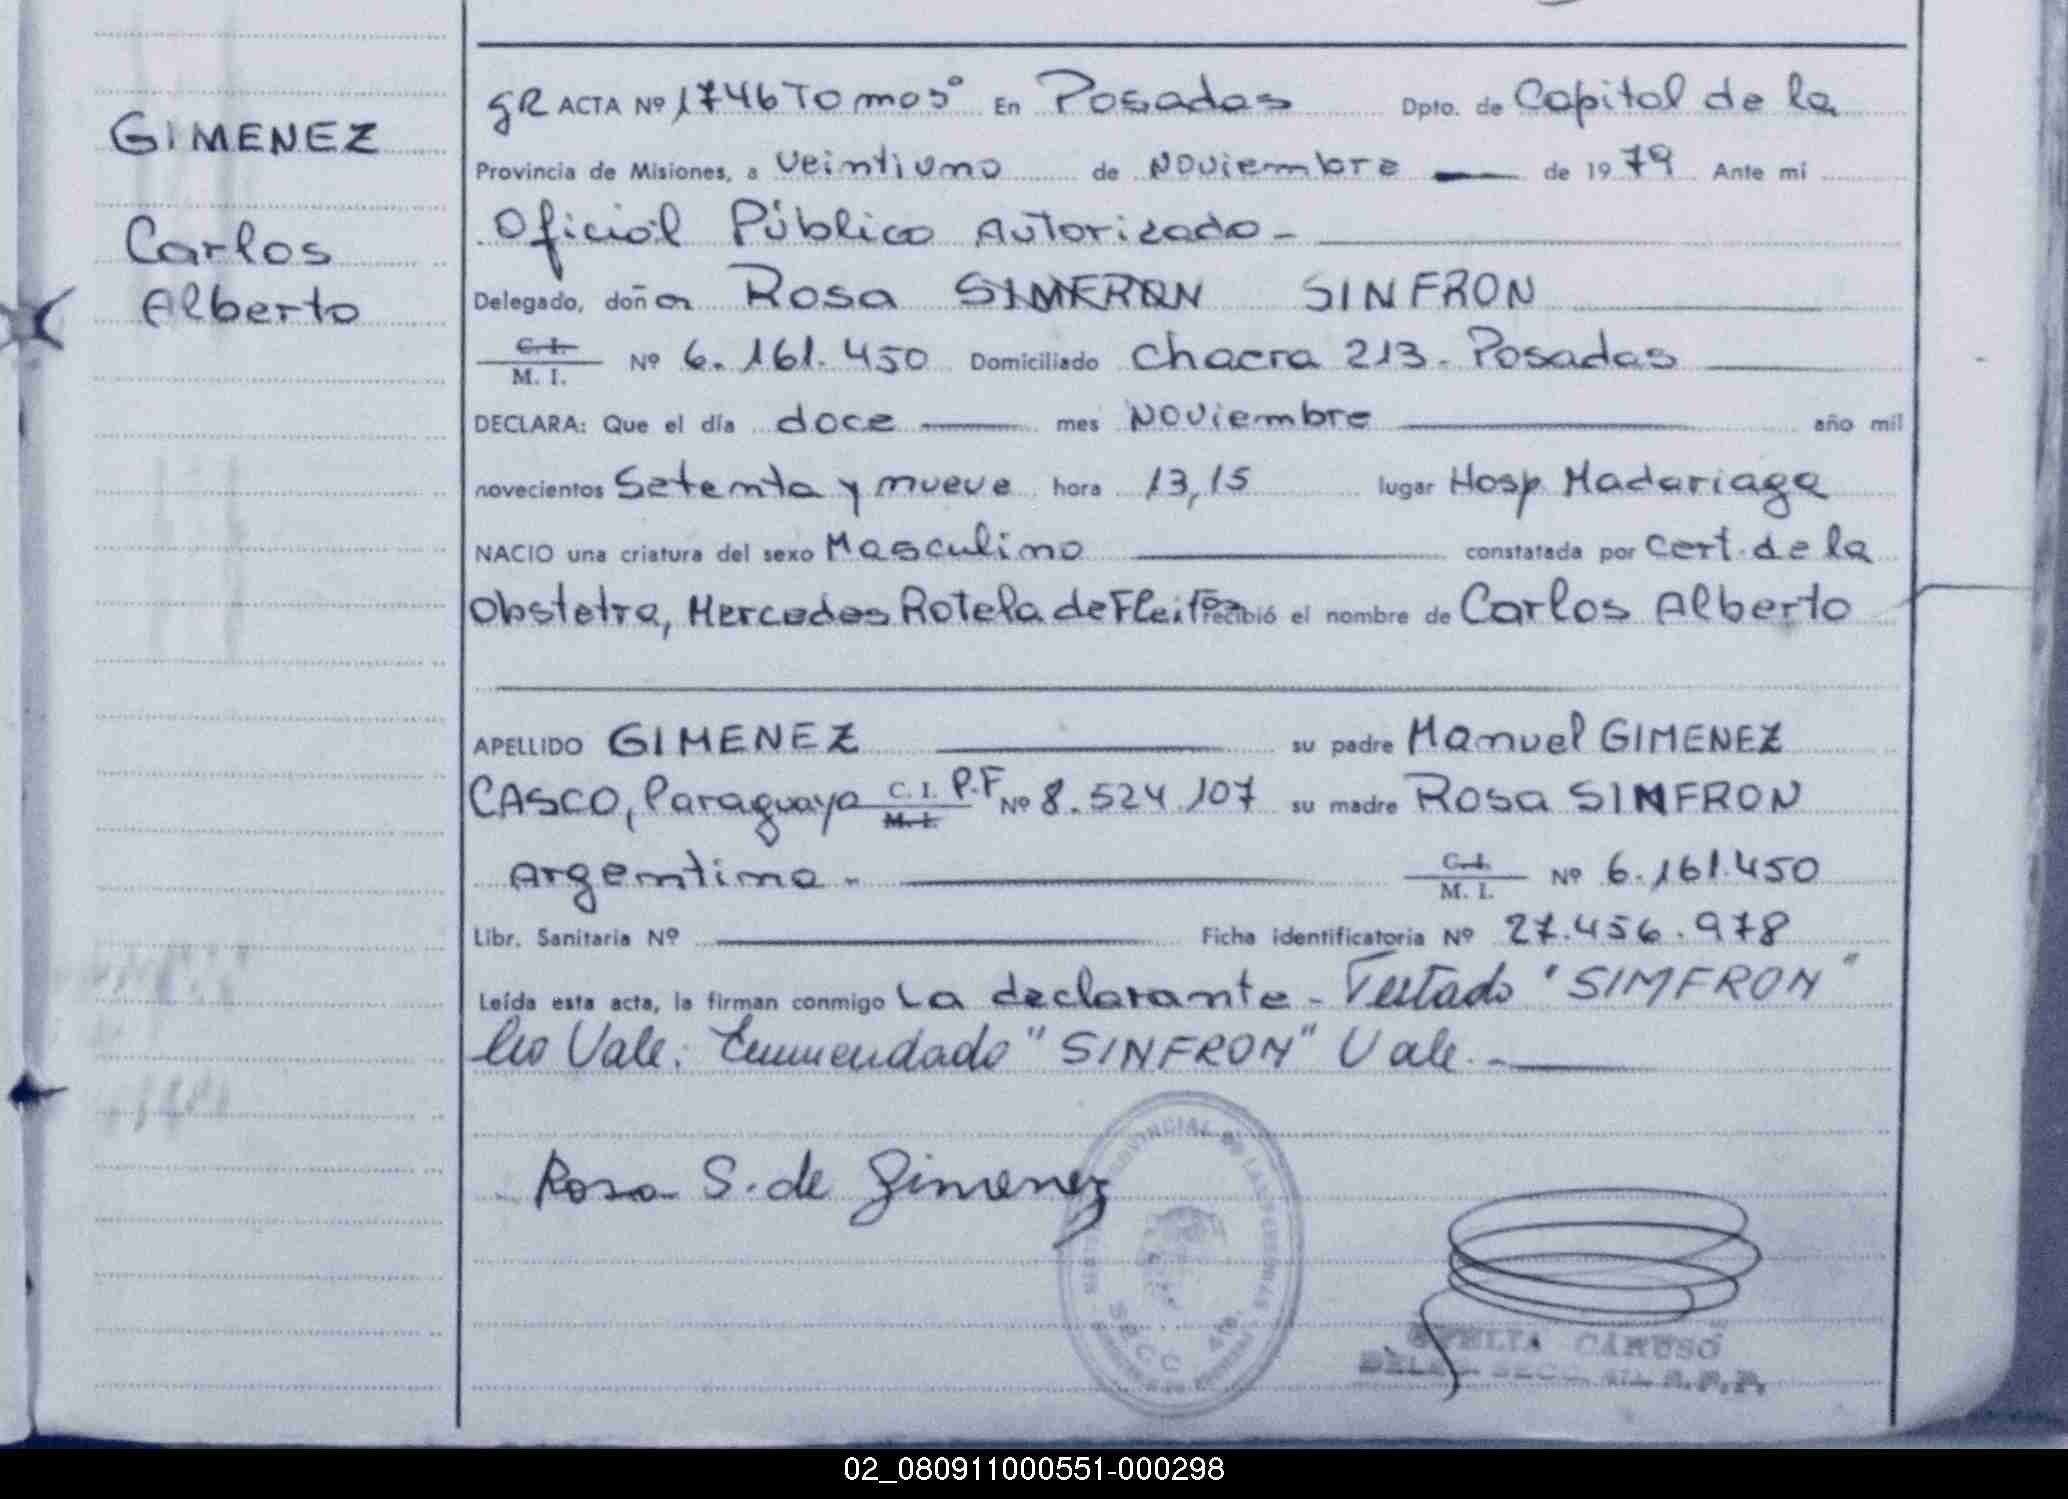 GIMENEZ
Carlos
Alberto
gR ACTA Nº 1746 Tomo 5° En Posadas Dpto. de Capital de la
Provincia de Misiones, a veintiuno de Noviembre de 1979 Ante mí
Oficial Público Autorizado -
Delegado, doña Rosa SIMFRON SINFRON
C. I. / M. I. Nº 6.161.450 Domiciliado Chacra 213. Posadas
DECLARA: Que el día doce mes Noviembre año mil
novecientos Setenta y nueve hora 13,15 lugar Hosp Madariaga
NACIO una criatura del sexo Masculino constatada por cert. de la
Obstetra, Mercedes Rotela de Fleitas recibió el nombre de Carlos Alberto
APELLIDO GIMENEZ su padre Manuel GIMENEZ
CASCO, Paraguayo C. I. / M. I. P.F Nº 8.524.107 su madre Rosa SINFRON
Argentina - C. I. / M. I. Nº 6.161.450
Libr. Sanitaria Nº Ficha identificatoria Nº 27.456.978
Leída esta acta, la firman conmigo La declarante - Testado "SIMFRON"
No Vale. Enmendado "SINFRON" Vale. -
Rosa S. de Gimenez
PROVINCIAL DE LAS PERSONAS
SECC. 4ta.
CARUSO
SECC. 4ta. R.P.P.
02_080911000551-000298